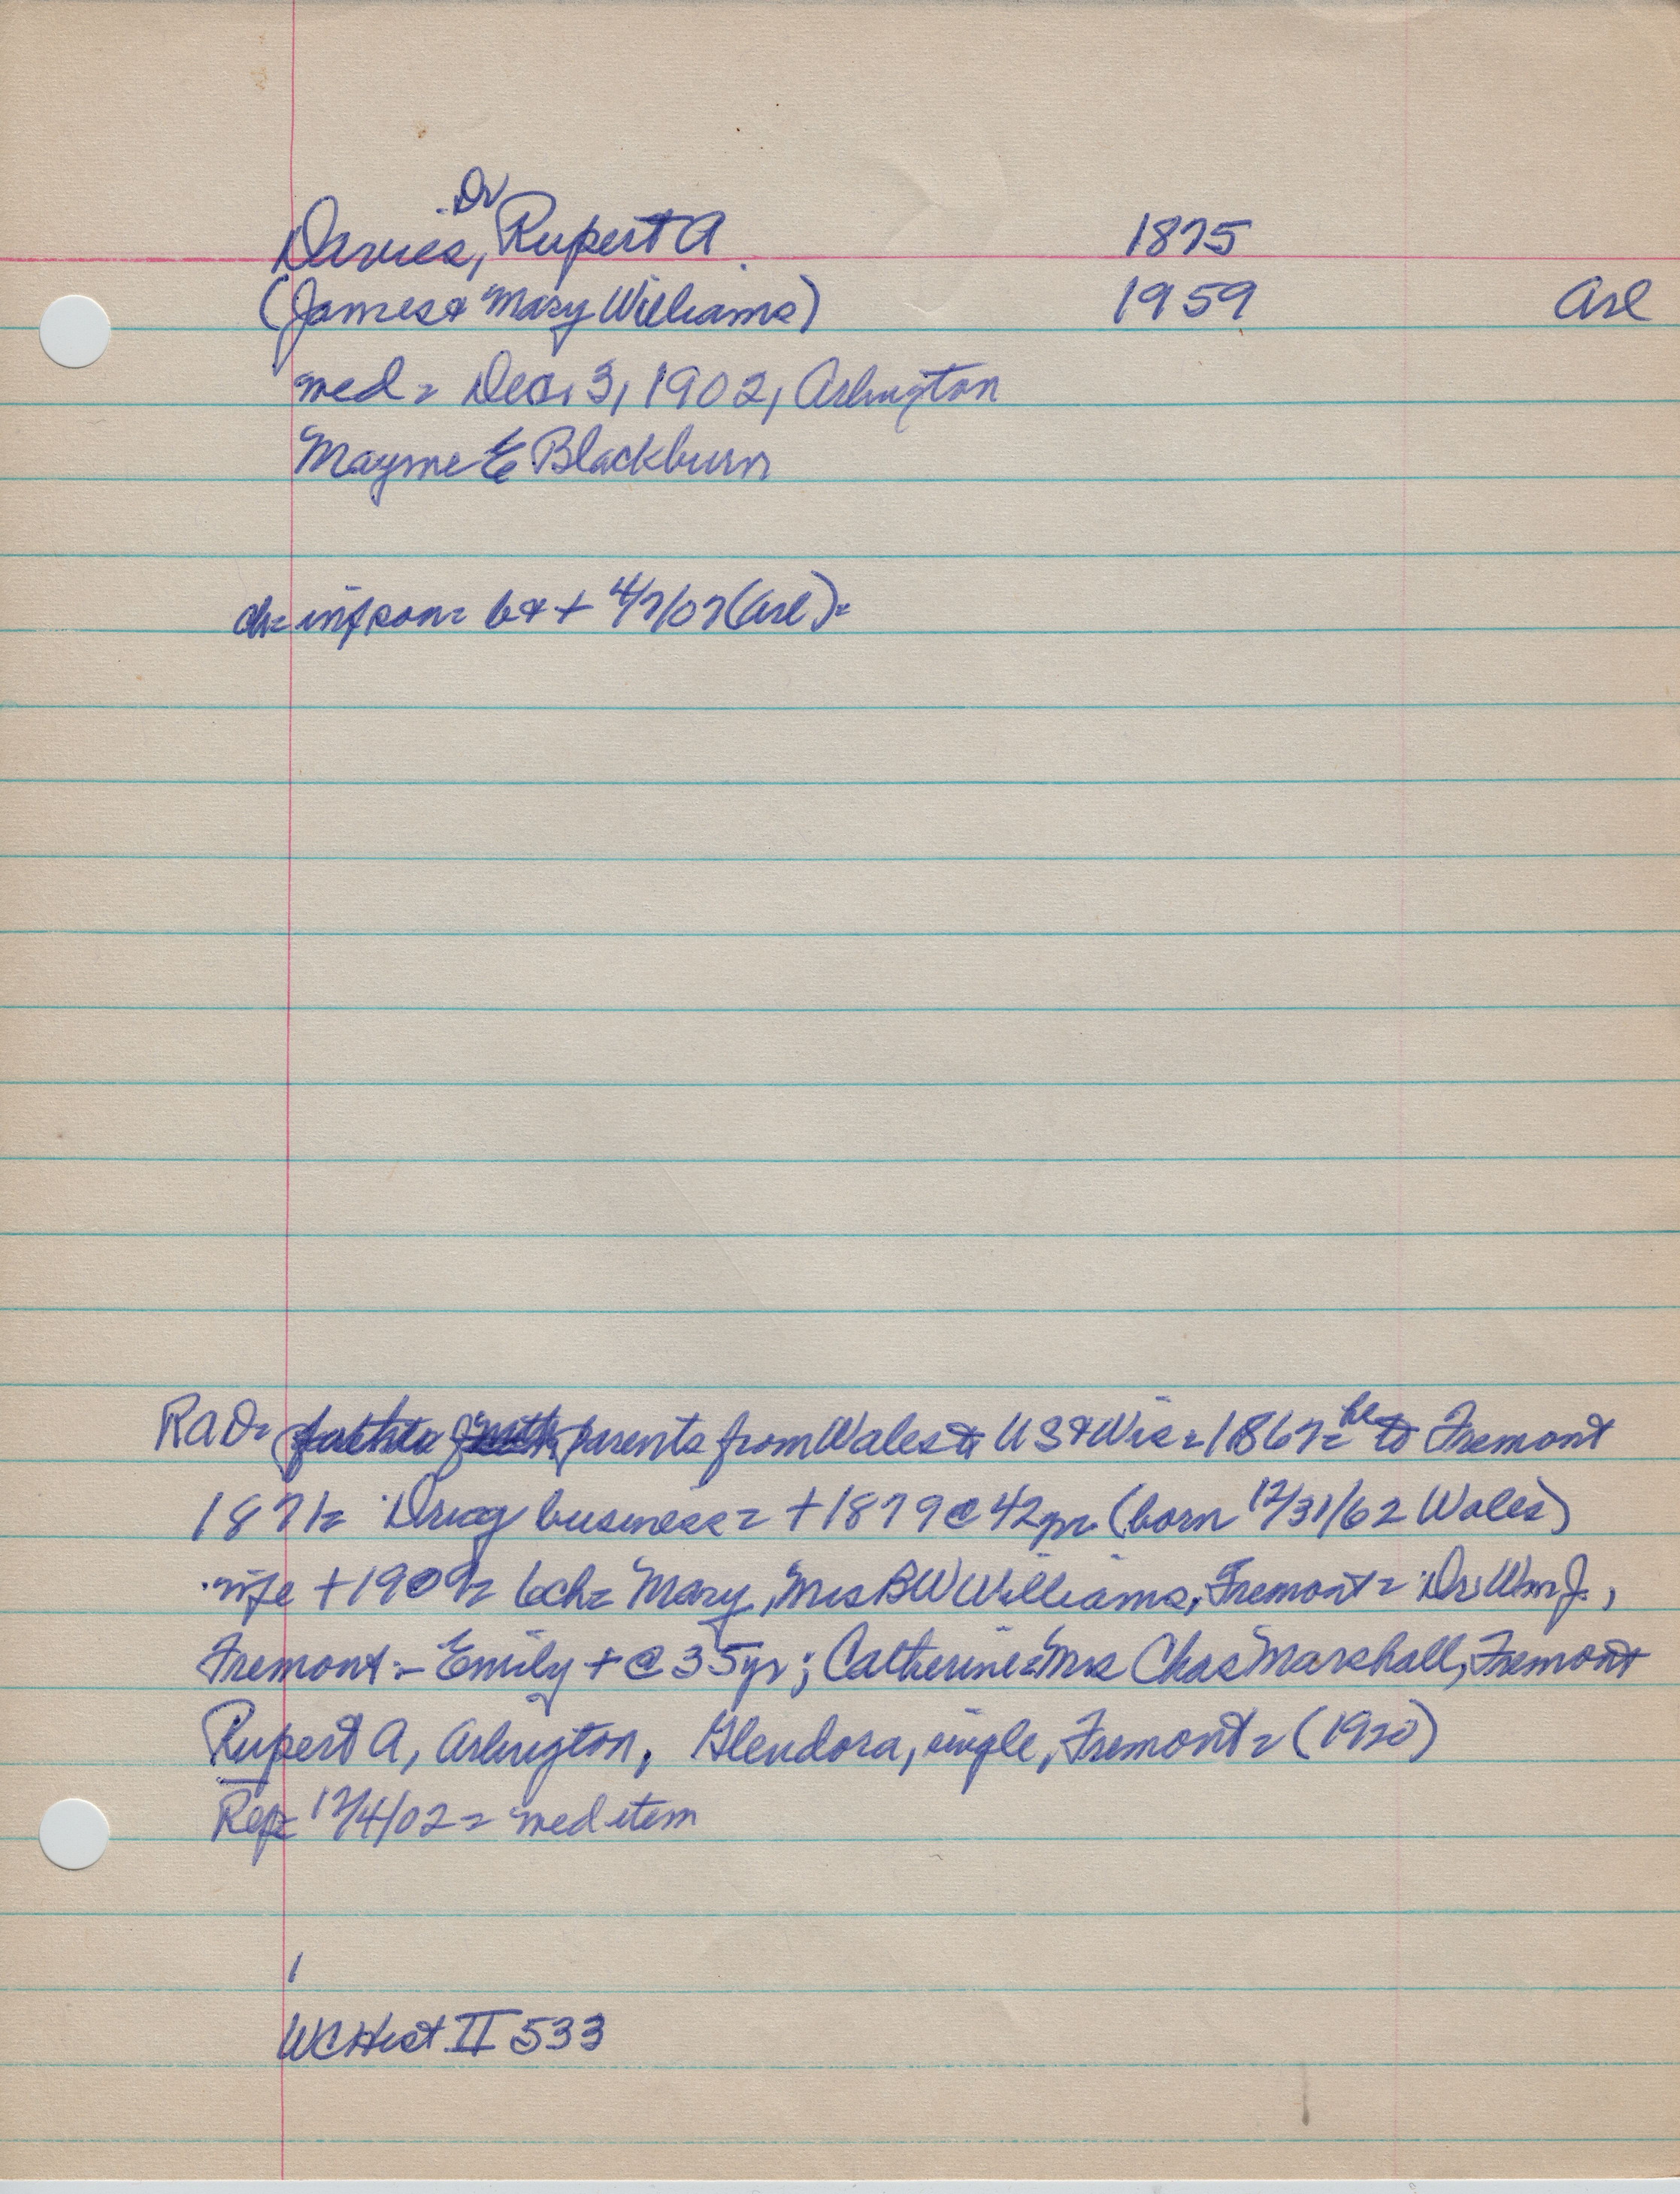 Dr
Davies, Rupert A 1875
(James & Mary Williams) 1959 Arl
med = Dec. 3, 1902, Arlington
Mayme E Blackburn
ch= inf son= b & + 4/7/07 (Arl)=
RAD= parents from Wales to US & Wis = 1867= he to Fremont
1871= Drug business = + 1879 @ 42yr (born 12/31/62 Wales)
wife + 1909= 6ch= Mary, Mrs B W Williams, Fremont = Dr Wm J,
Fremont - Emily + @ 35yr; Catherine = Mrs Chas Marshall, Fremont
Rupert A, Arlington, Glendora, single, Fremont = (1920)
Rep= 12/4/02 = med item
WC Hist II 533